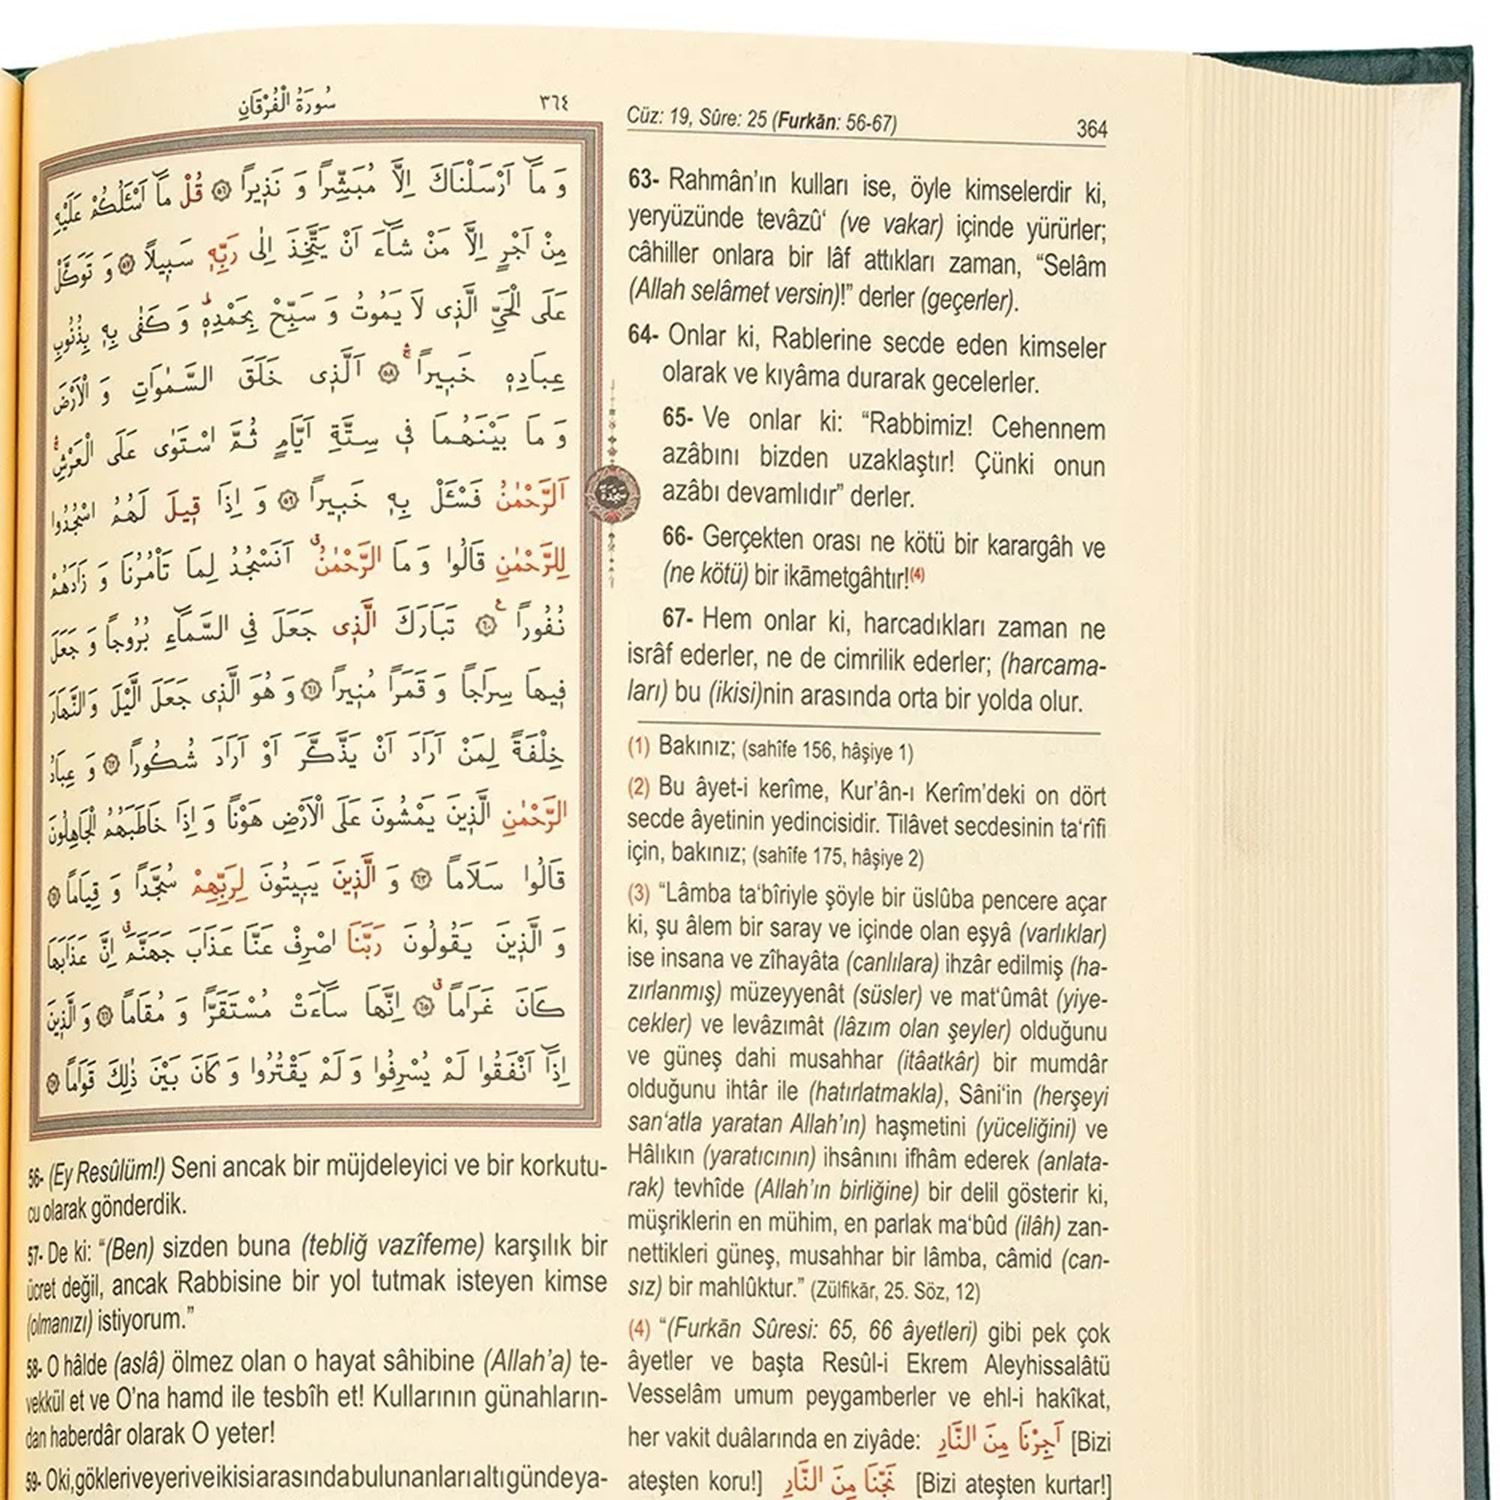 سُورَةُ الْفُرْقَانِ
٣٦٤
وَ مَٓا اَرْسَلْنَاكَ اِلَّا مُبَشِّرًا وَ نَذٖيرًا ﴿٥٦﴾ قُلْ مَٓا اَسْئَلُكُمْ عَلَيْهِ
مِنْ اَجْرٍ اِلَّا مَنْ شَٓاءَ اَنْ يَتَّخِذَ اِلٰى رَبِّهٖ سَبٖيلًا ﴿٥٧﴾ وَ تَوَكَّلْ
عَلَى الْحَيِّ الَّذٖى لَا يَمُوتُ وَ سَبِّحْ بِحَمْدِهٖ وَ كَفٰى بِهٖ بِذُنُوبِ
عِبَادِهٖ خَبٖيرًا ﴿٥٨﴾ اَلَّذٖى خَلَقَ السَّمٰوَاتِ وَ الْاَرْضَ
وَ مَا بَيْنَهُمَا فٖى سِتَّةِ اَيَّامٍ ثُمَّ اسْتَوٰى عَلَى الْعَرْشِ
اَلرَّحْمٰنُ فَسْئَلْ بِهٖ خَبٖيرًا ﴿٥٩﴾ وَ اِذَا قٖيلَ لَهُمُ اسْجُدُوا
لِلرَّحْمٰنِ قَالُوا وَ مَا الرَّحْمٰنُ اَنَسْجُدُ لِمَا تَاْمُرُنَا وَ زَادَهُمْ
نُفُورًا ﴿٦٠﴾ تَبَارَكَ الَّذٖى جَعَلَ فِي السَّمَٓاءِ بُرُوجًا وَ جَعَلَ
فٖيهَا سِرَاجًا وَ قَمَرًا مُنٖيرًا ﴿٦١﴾ وَ هُوَ الَّذٖى جَعَلَ الَّيْلَ وَ النَّهَارَ
خِلْفَةً لِمَنْ اَرَادَ اَنْ يَذَّكَّرَ اَوْ اَرَادَ شُكُورًا ﴿٦٢﴾ وَ عِبَادُ
الرَّحْمٰنِ الَّذٖينَ يَمْشُونَ عَلَى الْاَرْضِ هَوْنًا وَ اِذَا خَاطَبَهُمُ الْجَاهِلُونَ
قَالُوا سَلَامًا ﴿٦٣﴾ وَ الَّذٖينَ يَبٖيتُونَ لِرَبِّهِمْ سُجَّدًا وَ قِيَامًا ﴿٦٤﴾
وَ الَّذٖينَ يَقُولُونَ رَبَّنَا اصْرِفْ عَنَّا عَذَابَ جَهَنَّمَ اِنَّ عَذَابَهَا
كَانَ غَرَامًا ﴿٦٥﴾ اِنَّهَا سَٓاءَتْ مُسْتَقَرًّا وَ مُقَامًا ﴿٦٦﴾ وَ الَّذٖينَ
اِذَٓا اَنْفَقُوا لَمْ يُسْرِفُوا وَ لَمْ يَقْتُرُوا وَ كَانَ بَيْنَ ذٰلِكَ قَوَامًا ﴿٦٧﴾
سَجْدَة
56- (Ey Resûlüm!) Seni ancak bir müjdeleyici ve bir korkutu-
cu olarak gönderdik.
57- De ki: “(Ben) sizden buna (tebliğ vazîfeme) karşılık bir
ücret değil, ancak Rabbisine bir yol tutmak isteyen kimse
(olmanızı) istiyorum.”
58- O hâlde (aslâ) ölmez olan o hayat sâhibine (Allah’a) te-
vekkül et ve O’na hamd ile tesbîh et! Kullarının günahların-
dan haberdâr olarak O yeter!
59- O ki, gökleri ve yeri ve ikisi arasında bulunanları altı günde ya-
Cüz: 19, Sûre: 25 (Furkān: 56-67)
364
63- Rahmân’ın kulları ise, öyle kimselerdir ki,
yeryüzünde tevâzû‘ (ve vakar) içinde yürürler;
câhiller onlara bir lâf attıkları zaman, “Selâm
(Allah selâmet versin)!” derler (geçerler).
64- Onlar ki, Rablerine secde eden kimseler
olarak ve kıyâma durarak gecelerler.
65- Ve onlar ki: “Rabbimiz! Cehennem
azâbını bizden uzaklaştır! Çünki onun
azâbı devamlıdır” derler.
66- Gerçekten orası ne kötü bir karargâh ve
(ne kötü) bir ikāmetgâhtır!(4)
67- Hem onlar ki, harcadıkları zaman ne
isrâf ederler, ne de cimrilik ederler; (harcama-
ları) bu (ikisi)nin arasında orta bir yolda olur.
(1) Bakınız; (sahîfe 156, hâşiye 1)
(2) Bu âyet-i kerîme, Kur’ân-ı Kerîm’deki on dört
secde âyetinin yedincisidir. Tilâvet secdesinin ta‘rîfi
için, bakınız; (sahîfe 175, hâşiye 2)
(3) “Lâmba ta‘bîriyle şöyle bir üslûba pencere açar
ki, şu âlem bir saray ve içinde olan eşyâ (varlıklar)
ise insana ve zîhayâta (canlılara) ihzâr edilmiş (ha-
zırlanmış) müzeyyenât (süsler) ve mat‘ûmât (yiye-
cekler) ve levâzımât (lâzım olan şeyler) olduğunu
ve güneş dahi musahhar (itâatkâr) bir mumdâr
olduğunu ihtâr ile (hatırlatmakla), Sâni‘in (herşeyi
san‘atla yaratan Allah’ın) haşmetini (yüceliğini) ve
Hâlıkın (yaratıcının) ihsânını ifhâm ederek (anlata-
rak) tevhîde (Allah’ın birliğine) bir delil gösterir ki,
müşriklerin en mühim, en parlak ma‘bûd (ilâh) zan-
nettikleri güneş, musahhar bir lâmba, câmid (can-
sız) bir mahlûktur.” (Zülfikār, 25. Söz, 12)
(4) “(Furkān Sûresi: 65, 66 âyetleri) gibi pek çok
âyetler ve başta Resûl-i Ekrem Aleyhissalâtü
Vesselâm umum peygamberler ve ehl-i hakîkat,
her vakit duâlarında en ziyâde: اَجِرْنَا مِنَ النَّارِ [Bizi
ateşten koru!] نَجِّنَا مِنَ النَّارِ [Bizi ateşten kurtar!]